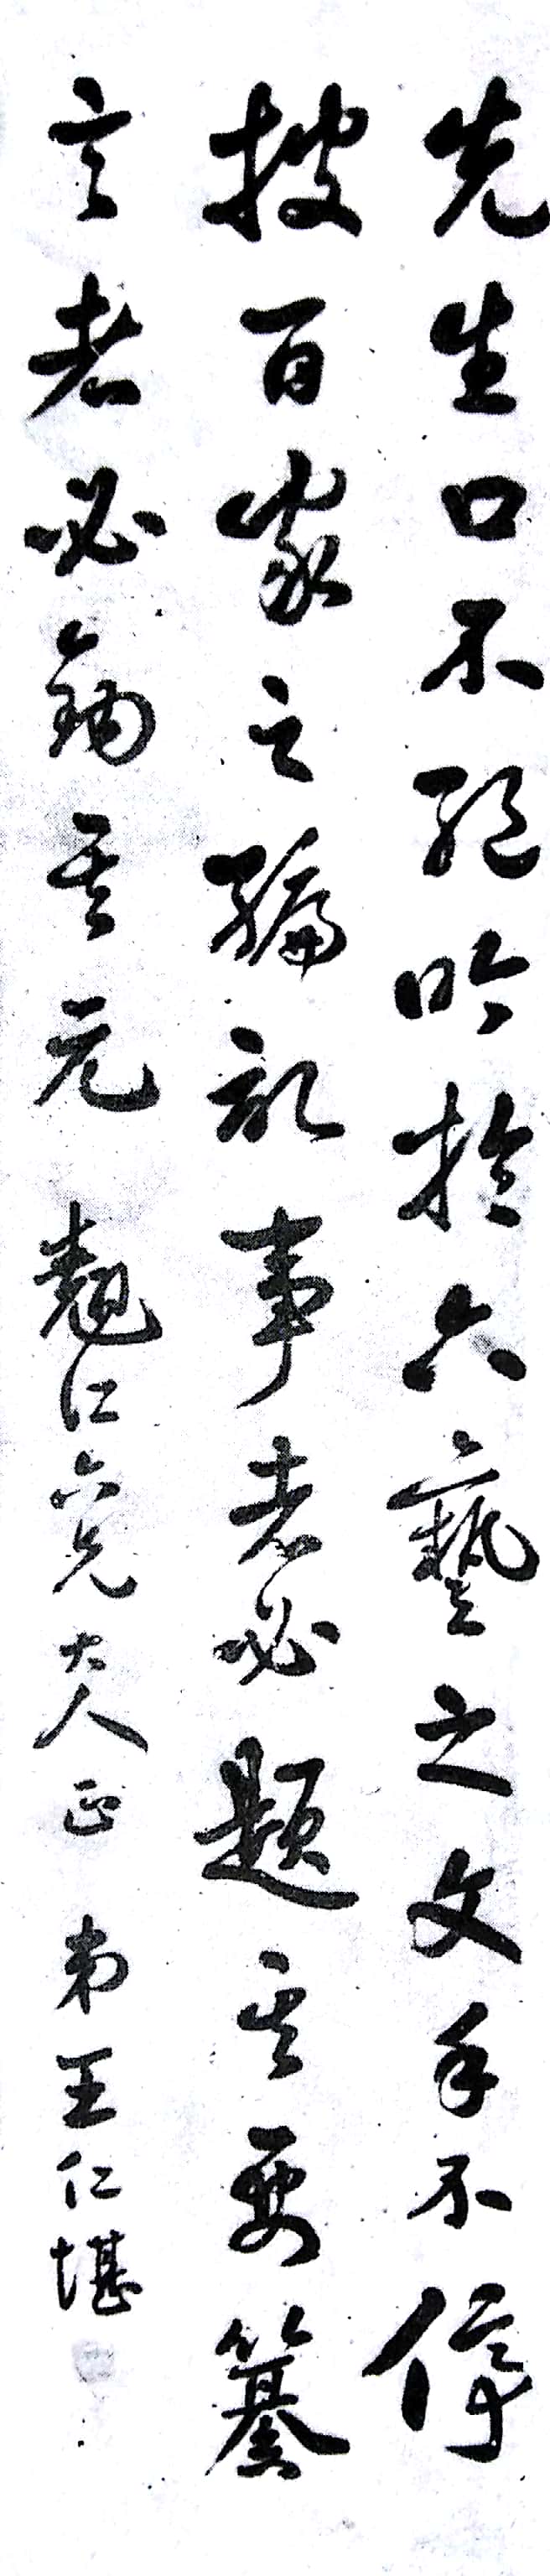 先生口不絕吟於六藝之文手不停
披百家之編記事者必題其要纂
言者必鉤其元 魏仁六兄大人正 弟王仁堪